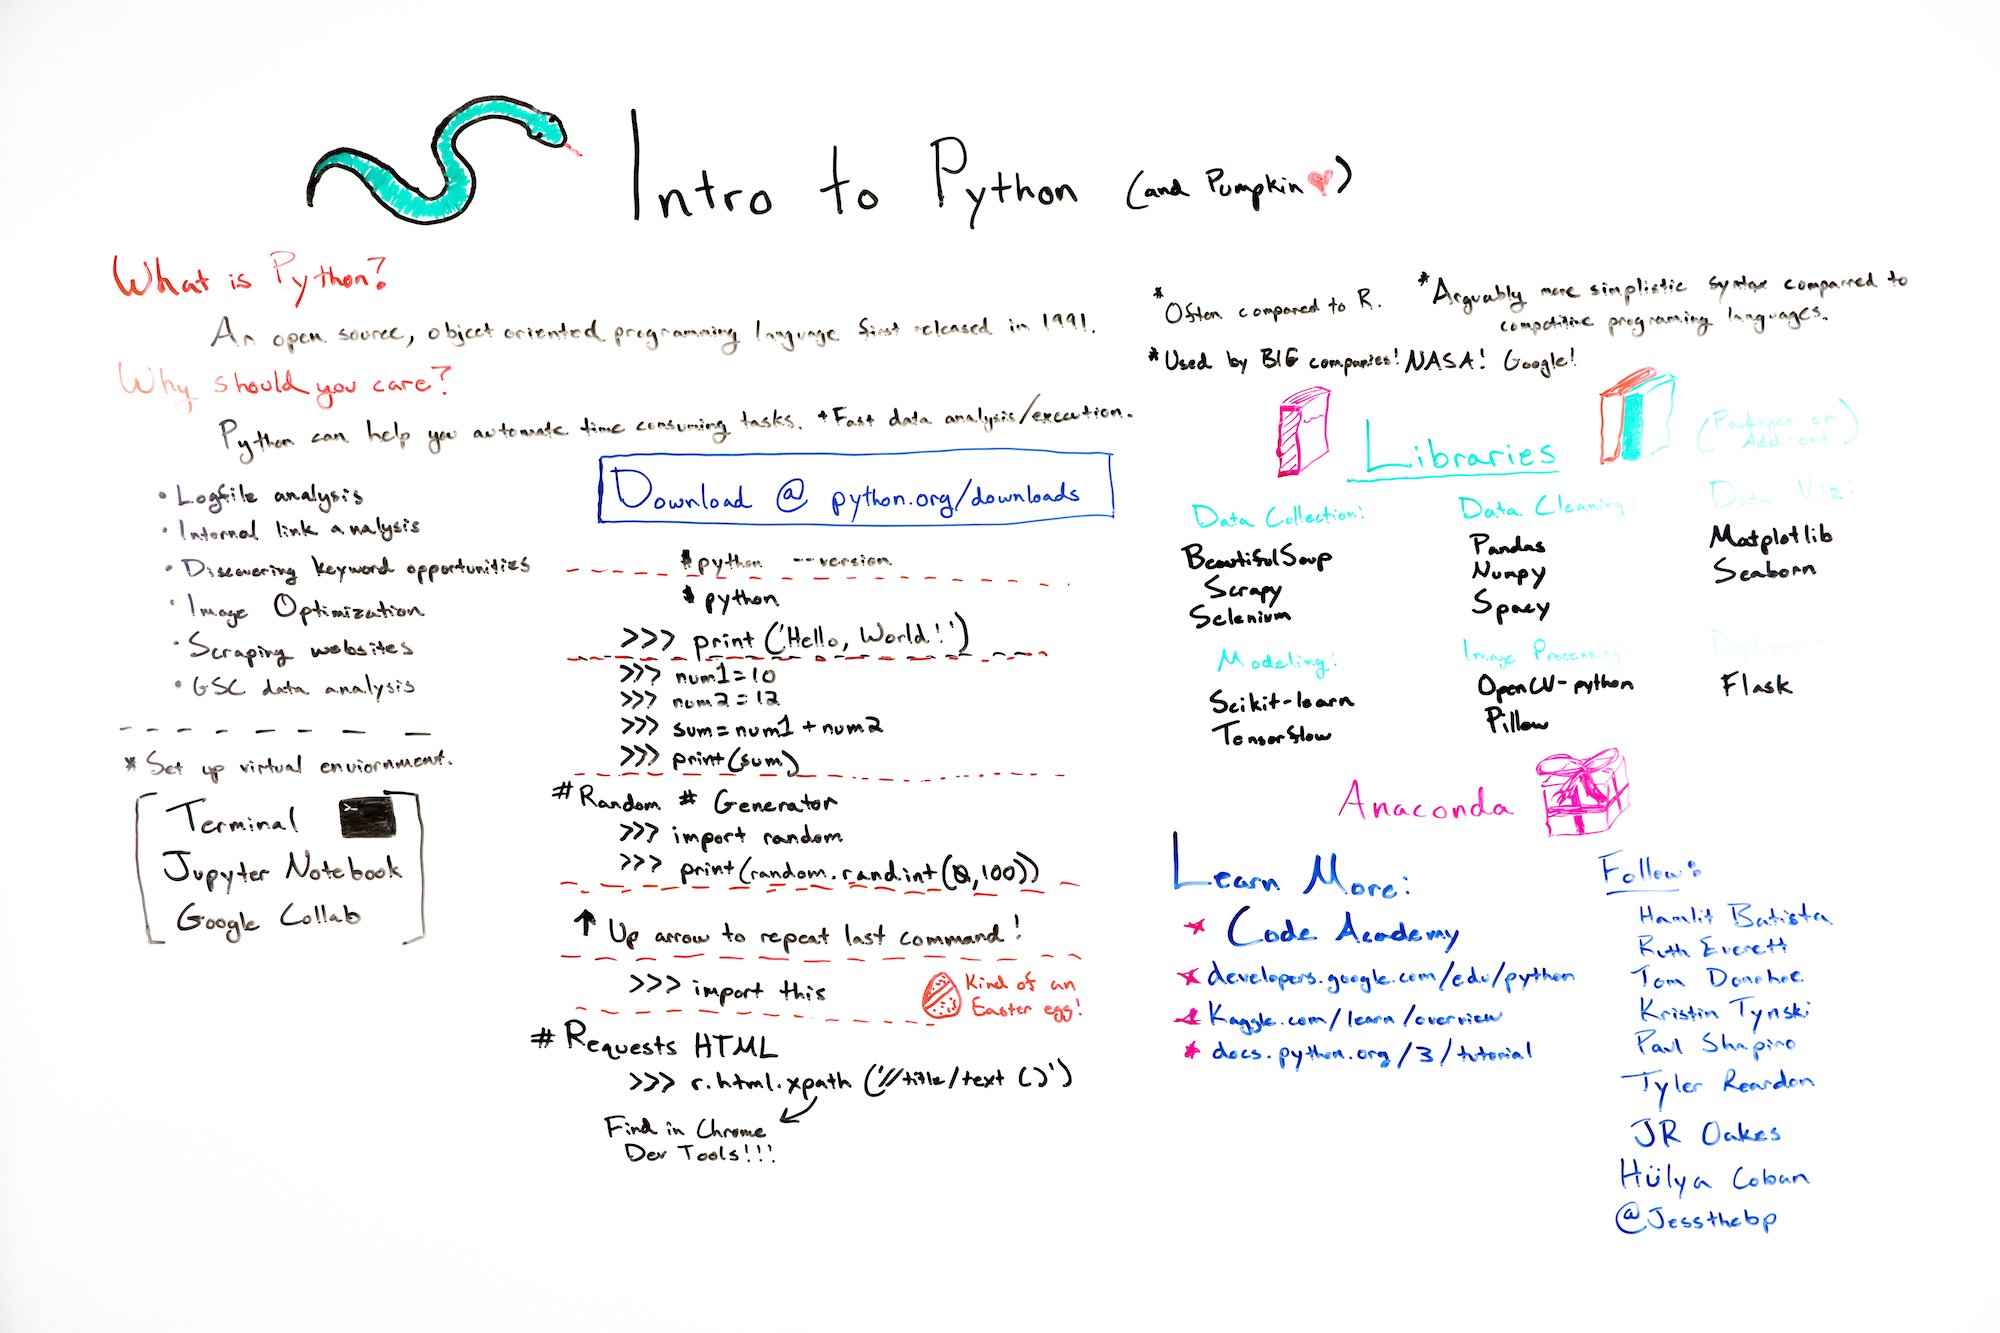 Intro to Python (and Pumpkin)
What is Python?
An open source, object oriented programming language first released in 1991.
Why should you care?
Python can help you automate time consuming tasks. + Fast data analysis/execution.
• Logfile analysis
• Internal link analysis
• Discovering keyword opportunities
• Image Optimization
• Scraping websites
• GSC data analysis
* Set up virtual enviornment.
Terminal
>_
Jupyter Notebook
Google Collab
Download @ python.org/downloads
# python --version
$ python
>>> print('Hello, World!')
>>> num1=10
>>> num2=12
>>> sum=num1+num2
>>> print(sum)
# Random # Generator
>>> import random
>>> print(random.randint(0,100))
↑ Up arrow to repeat last command!
>>> import this
Kind of an
Easter egg!
# Requests HTML
>>> r.html.xpath('//title/text()')
Find in Chrome
Dev Tools!!!
* Often compared to R.
* Arguably more simplistic syntax comparred to
competitive programing languages.
* Used by BIG companies! NASA! Google!
Libraries
(Packages or
Add-ons)
Data Collection:
BeautifulSoup
Scrapy
Selenium
Data Cleaning:
Pandas
Numpy
Spacy
Data Viz:
Matplotlib
Seaborn
Modeling:
Scikit-learn
Tensorflow
Image Processing:
OpenCV-python
Pillow
Deployment
Flask
Anaconda
Learn More:
* Code Academy
* developers.google.com/edu/python
* Kaggle.com/learn/overview
* docs.python.org/3/tutorial
Follow:
Hamlit Batista
Ruth Everett
Tom Donohoe
Kristin Tynski
Paul Shapiro
Tyler Reardon
JR Oakes
Hülya Coban
@Jessthebp